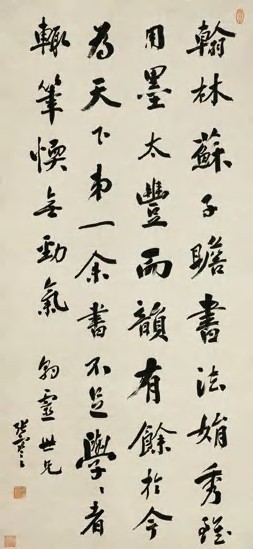 翰林蘇子瞻書法娟秀雖
用墨太豐而韻有餘於今
為天下第一余書不足學學者
輒筆愞無勁氣 翱靈世兄
張謇